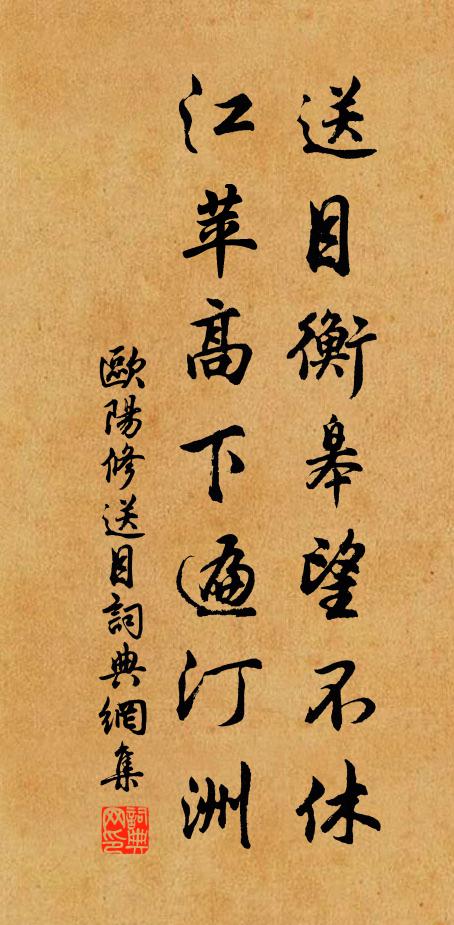 送目衡皋望不休
江苹高下遍汀洲
歐陽修送目詞典網集
詞典网印